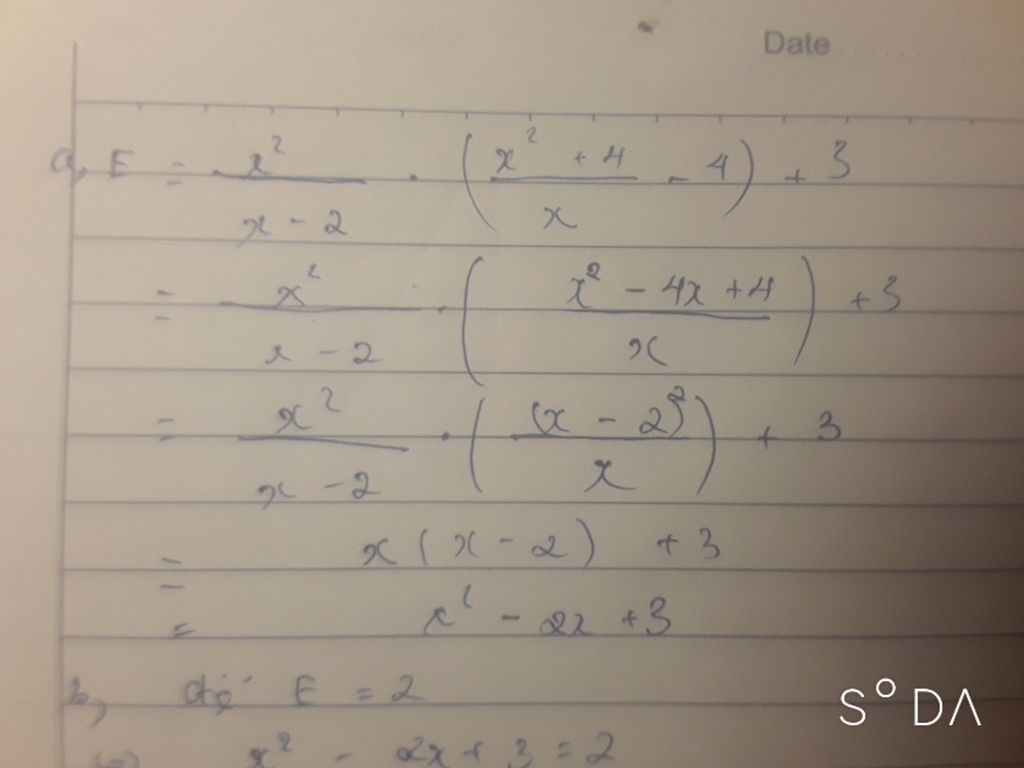 Date
a, E = x²/(x - 2) . ((x² + 4)/x - 4) + 3
= x²/(x - 2) . ((x² - 4x + 4)/x) + 3
= x²/(x - 2) . ((x - 2)²/x) + 3
= x(x - 2) + 3
= x² - 2x + 3
b, để E = 2
(=) x² - 2x + 3 = 2
S°DΛ